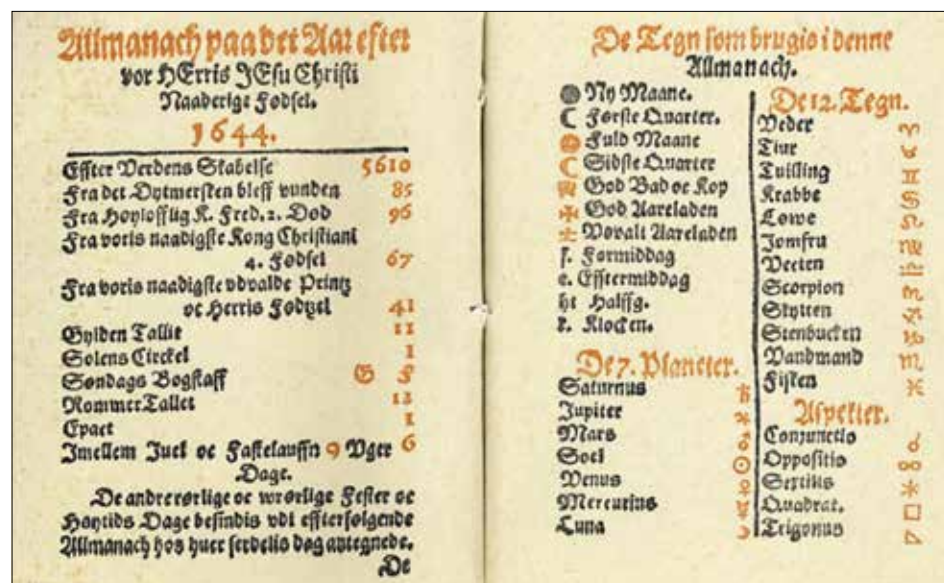 Allmanach paa det Aar efter
vor HErris JEsu Christi
Naaderige Fødsel.
1644.
Effter Verdens Skabelse 5610
Fra det Dytmersten bleff vunden 85
Fra Høylofflig K. Fred. 2. Død 96
Fra voris naadigste Kong Christiani
4. Fødsel 67
Fra voris naadigste vdvalde Printz
oc Herris Fødtzel 41
Gylden Tallit 11
Solens Circkel 1
Søndags Bogstaff G F
RommerTallet 12
Epact 1
Imellem Juel oc Fastelauffn 9 Vger 6
Dage.
De andre rørlige oc wrørlige Fester oc
Høytids Dage befindis vdi effterfølgende
Allmanach hos huer serdelis dag antegnede.
De
De Tegn som brugis i denne
Allmanach.
Ny Maane.
☾ Første Quarter.
Fuld Maane
☾ Sidste Quarter
God Bad oc Kop
✠ God Aareladen
Vdvalt Aareladen
f. Formiddag
e. Efftermiddag
ht Halffg.
k. Klocken.
De 7. Planeter.
Saturnus ♄
Jupiter ♃
Mars ♂
Soel ☉
Venus ♀
Mercurius ☿
Luna ☽
De 12. Tegn.
Veder ♈
Tiur ♉
Tuilling ♊
Krabbe ♋
Løwe ♌
Jomfru ♍
Vecten ♎
Scorpion ♏
Skytten ♐
Stenbucken ♑
Vandmand ♏
Fisken ♓
Aspekter.
Conjunctio ☌
Oppositio ☍
Sextilis ⚹
Quadrat. □
Trigonus △